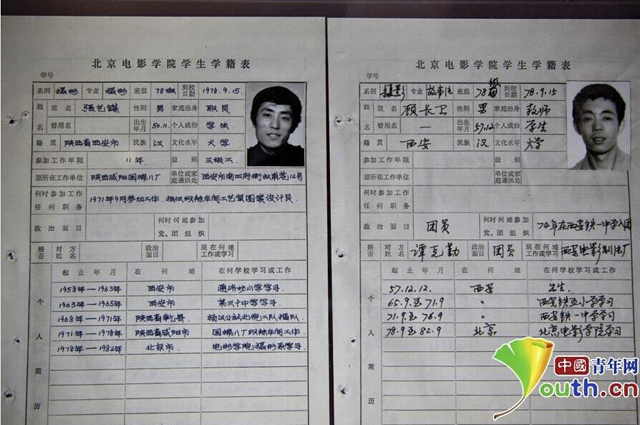 北京电影学院学生学籍表
学号
系别 摄影 专业 摄影 班级 78级 到校日期 1978.9.15
姓名 张艺谋 性别 男 家庭出身 职员
曾用名 出生年月 50.11 个人成份 学生
籍贯 陕西省西安市 民族 汉 文化水平 大学
参加工作年限 11年 级别 三级工
原所在工作单位 陕西咸阳国棉八厂 单位或家庭通讯处
何时参加工作任何职务 1971年9月参加工作
政治面目 何时何地参加党、团组织
婚否 对方姓名 政治面目 现在何地工作或学习
个人简历
起止年月 在何地 在何学校学习或工作
1958年—1963年 西安市
1963年—1965年 西安市 第三十中学学习
1968年—1971年 陕西省乾县
1971年—1978年 陕西省咸阳市
1978年—1982年 北京市 电影学院摄影系学习
北京电影学院学生学籍表
学号
系别 摄影 专业 故事片 班级 78 到校日期 78.9.15
姓名 顾长卫 性别 男 家庭出身 教师
曾用名 — 出生年月 57.12 个人成份 学生
籍贯 西安 民族 汉 文化水平 大学
参加工作年限 级别
原所在工作单位 单位或家庭通讯处
何时参加工作任何职务
政治面目 团员 何时何地参加党、团组织
婚否 对方姓名 谭克勤 政治面目 团员 现在何地工作或学习 西安电影制片厂
个人简历
起止年月 在何地 在何学校学习或工作
57.12.12. 西安 出生.
65.9至71.9 〃
71.9至76.9 〃 西安铁一中学习
78.9至82.9 北京 北京电影学院学习
中国青年网
youth.cn